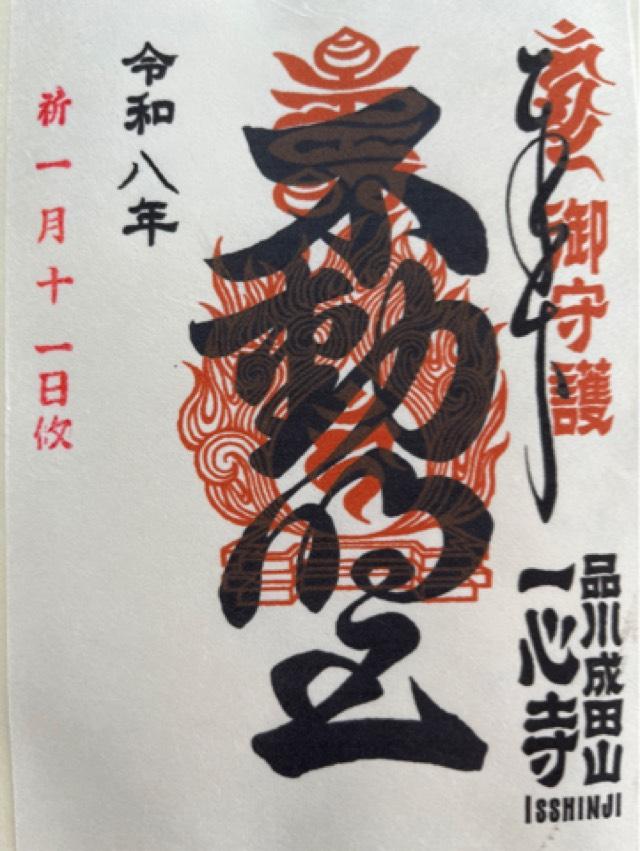 御守護
品川成田山
一心寺
ISSHINJI
不動明王
令和八年
祈一月十一日攸